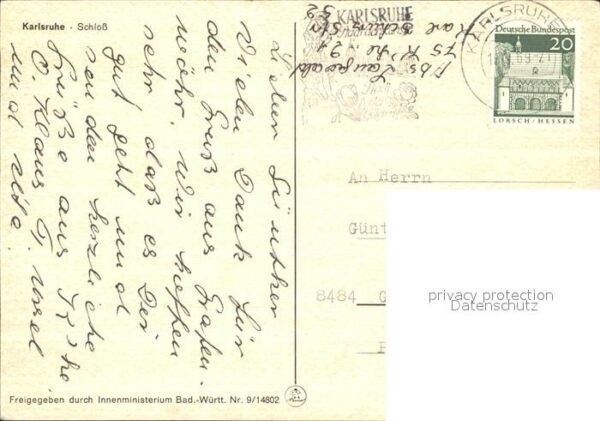 Karlsruhe - Schloß
Lieber Günther
Vielen Dank für
den Gruß aus Grafen.
wöhr. Wir hoffen
sehr daß es Dir
gut geht und
senden herzliche
Grüße aus K'he
O. Klaus T. Ursel
und Ute.
Freigegeben durch Innenministerium Bad.-Württ. Nr. 9/14802
KARLSRUHE
Abs.
75 K'he 21
Karl
KARLSRUHE
Deutsche Bundespost
20
LORSCH/HESSEN
An Herrn
Günt
8484 G
privacy protection
Datenschutz